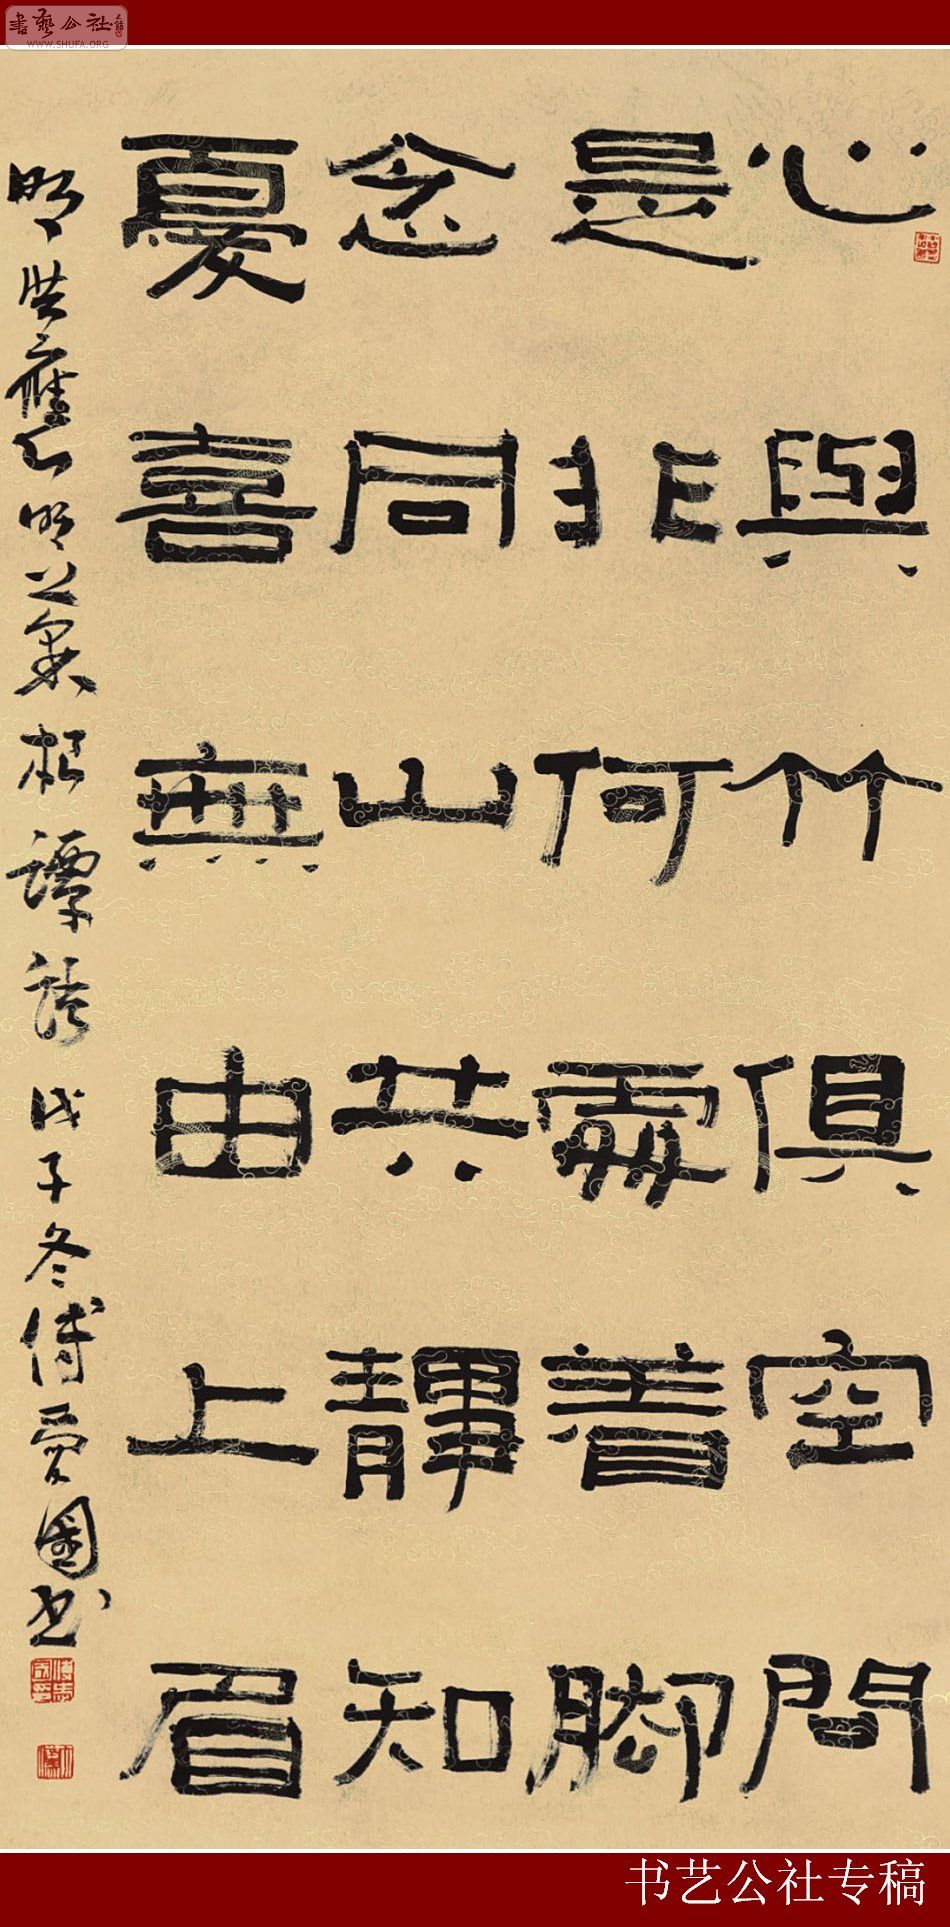 書藝公社
WWW.SHUFA.ORG
心與竹俱空問
是非何處着脚
念同山共靜知
憂喜無由上眉
明洪應明公菜根譚 戊子冬傅愛國书
书艺公社专稿